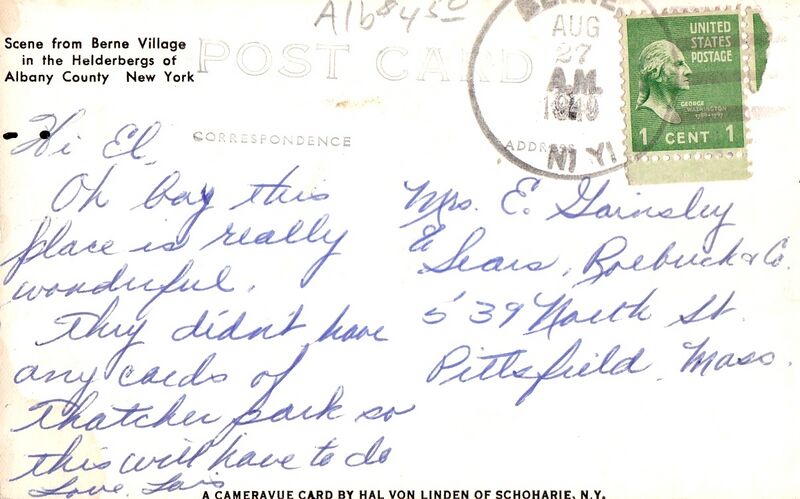 Alb $4.50
Scene from Berne Village
in the Helderbergs of
Albany County New York
POST CARD
BERNE,
AUG
27
A.M.
1949
N. Y.
UNITED
STATES
POSTAGE
GEORGE
WASHINGTON
1789-1797
1 CENT 1
CORRESPONDENCE
ADDRESS
Hi El,
Oh boy this
place is really
wonderful.
They didn't have
any cards of
Thatcher park so
this will have to do
Love, Lois
Mrs. E. Gainsley
Sears, Roebuck & Co.
539 North St.
Pittsfield, Mass.
A CAMERAVUE CARD BY HAL VON LINDEN OF SCHOHARIE, N.Y.